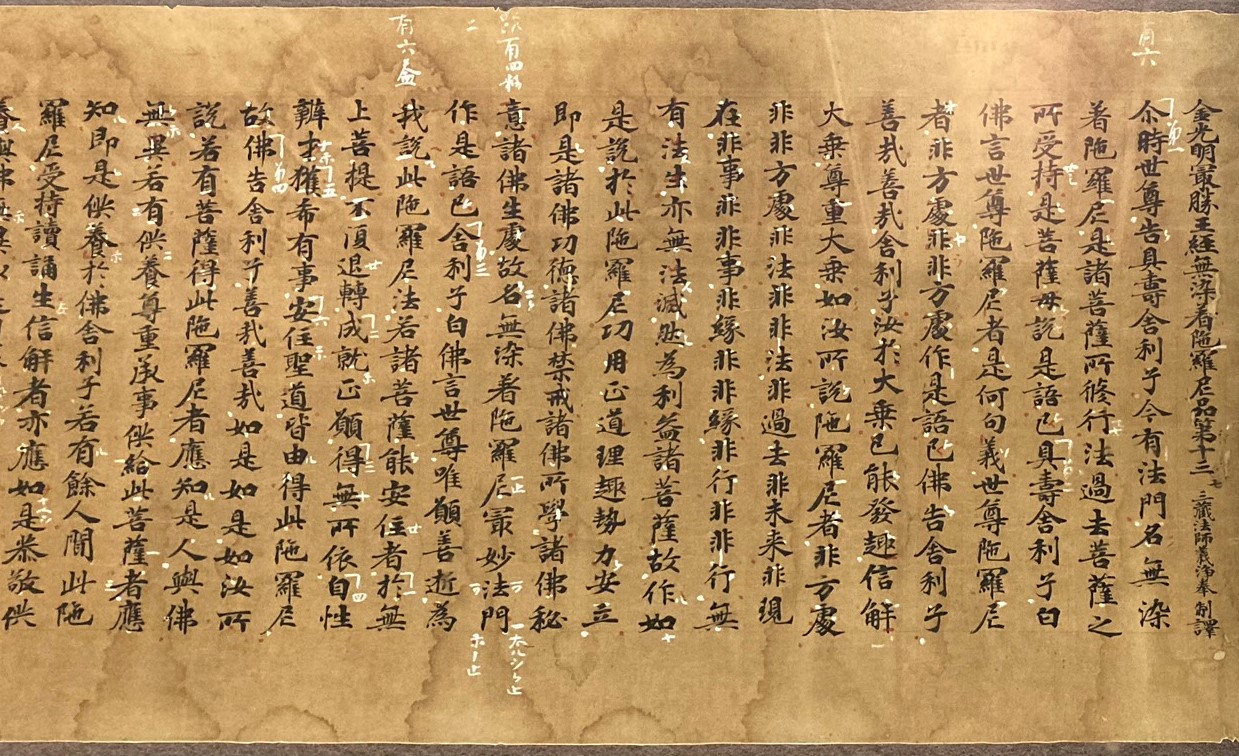 金光明最勝王經無染著陁羅尼品第十三 三藏法師義淨奉 制譯
尒時世尊告具壽舍利子今有法門名無染
著陁羅尼是諸菩薩所修行法過去菩薩之
所受持是菩薩母說是語已具壽舍利子白
佛言世尊陁羅尼者是何句義世尊陁羅尼
者非方處非非方處作是語已佛告舍利子
善㢤善㢤舍利子汝於大乘已能發趣信解
大乘尊重大乘如汝所說陁羅尼者非方處
非非方處非法非非法非過去非未来非現
在非事非非事非緣非非緣非行非非行無
有法生亦無法滅然為利益諸菩薩故作如
是說於此陁羅尼功用正道理趣勢力安立
即是諸佛功德諸佛禁戒諸佛所學諸佛秘
意諸佛生處故名無染著陁羅尼最妙法門
作是語已舍利子白佛言世尊唯願善逝為
我說此陁羅尼法若諸菩薩能安住者於無
上菩提不復退轉成就正願得無所依自性
辯才獲希有事安住聖道皆由得此陁羅尼
故佛告舍利子善㢤善㢤如是如是如汝所
說若有菩薩得此陁羅尼者應知是人與佛
無異若有供養尊重承事供給此菩薩者應
知即是供養於佛舍利子若有餘人聞此陁
羅尼受持讀誦生信解者亦應如是恭敬供
養與佛無異以